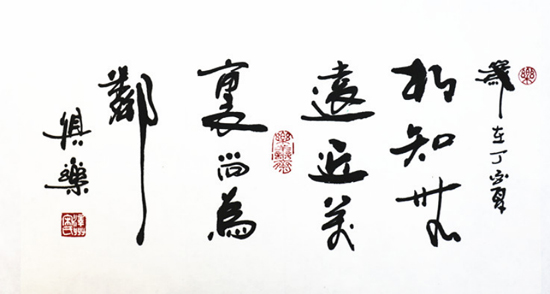 歲在丁亥夏
相知無
遠近萬
裏尚為
鄰
俱樂